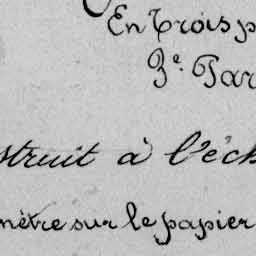 En trois p
3e. Par
struit à l'éch
mètre sur le papier